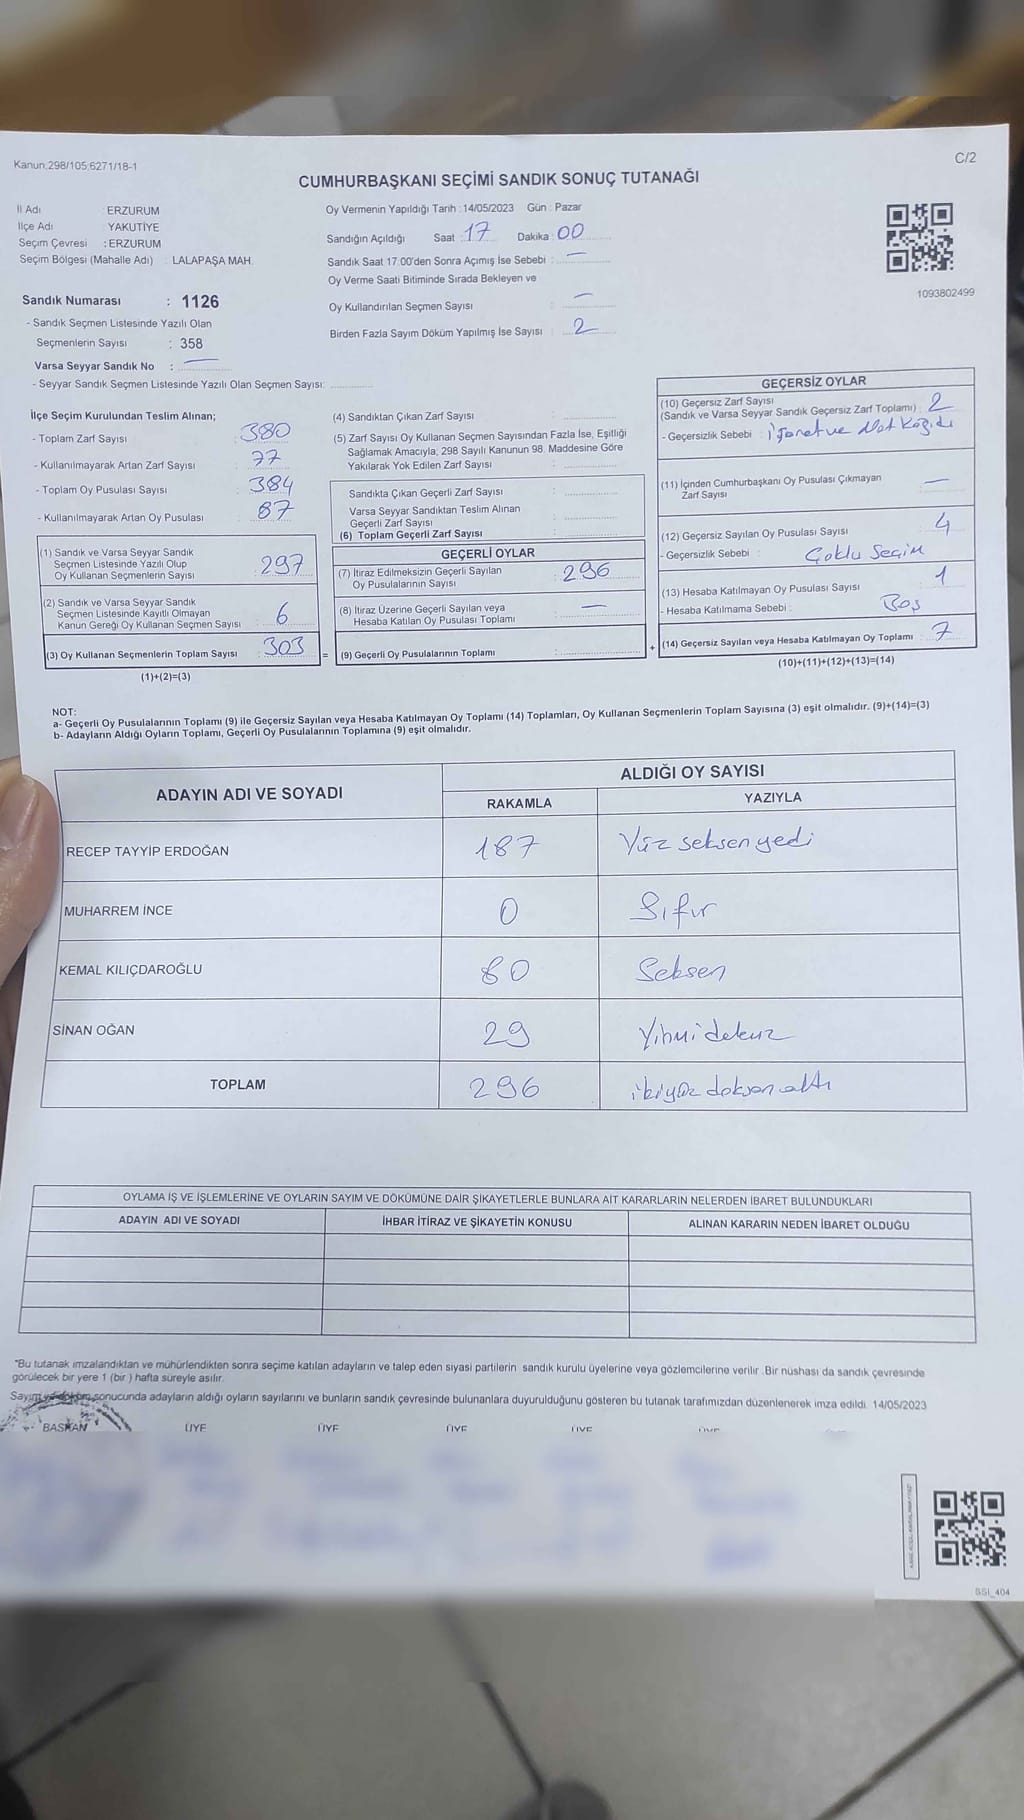 Kanun:298/105;6271/18-1
C/2
CUMHURBAŞKANI SEÇİMİ SANDIK SONUÇ TUTANAĞI
İl Adı : ERZURUM
İlçe Adı : YAKUTİYE
Seçim Çevresi : ERZURUM
Seçim Bölgesi (Mahalle Adı) : LALAPAŞA MAH.
Oy Vermenin Yapıldığı Tarih :14/05/2023 Gün : Pazar
Sandığın Açıldığı Saat 17 Dakika : 00
Sandık Saat 17:00'den Sonra Açımış İse Sebebi : —
Oy Verme Saati Bitiminde Sırada Bekleyen ve
Oy Kullandırılan Seçmen Sayısı : —
Birden Fazla Sayım Döküm Yapılmış İse Sayısı : 2
1093802499
Sandık Numarası : 1126
- Sandık Seçmen Listesinde Yazılı Olan
Seçmenlerin Sayısı : 358
Varsa Seyyar Sandık No : —
- Seyyar Sandık Seçmen Listesinde Yazılı Olan Seçmen Sayısı:
İlçe Seçim Kurulundan Teslim Alınan;
- Toplam Zarf Sayısı : 380
- Kullanılmayarak Artan Zarf Sayısı : 77
- Toplam Oy Pusulası Sayısı : 384
- Kullanılmayarak Artan Oy Pusulası : 87
(1) Sandık ve Varsa Seyyar Sandık
Seçmen Listesinde Yazılı Olup
Oy Kullanan Seçmenlerin Sayısı : 297
(2) Sandık ve Varsa Seyyar Sandık
Seçmen Listesinde Kayıtlı Olmayan
Kanun Gereği Oy Kullanan Seçmen Sayısı : 6
(3) Oy Kullanan Seçmenlerin Toplam Sayısı : 303
(1)+(2)=(3)
(4) Sandıktan Çıkan Zarf Sayısı :
(5) Zarf Sayısı Oy Kullanan Seçmen Sayısından Fazla İse, Eşitliği
Sağlamak Amacıyla; 298 Sayılı Kanunun 98. Maddesine Göre
Yakılarak Yok Edilen Zarf Sayısı :
Sandıkta Çıkan Geçerli Zarf Sayısı :
Varsa Seyyar Sandıktan Teslim Alınan
Geçerli Zarf Sayısı :
(6) Toplam Geçerli Zarf Sayısı :
GEÇERLİ OYLAR
(7) İtiraz Edilmeksizin Geçerli Sayılan
Oy Pusulalarının Sayısı : 296
(8) İtiraz Üzerine Geçerli Sayılan veya
Hesaba Katılan Oy Pusulası Toplamı : —
= (9) Geçerli Oy Pusulalarının Toplamı :
GEÇERSİZ OYLAR
(10) Geçersiz Zarf Sayısı
(Sandık ve Varsa Seyyar Sandık Geçersiz Zarf Toplamı) : 2
- Geçersizlik Sebebi : İşaret ve Not
(11) İçinden Cumhurbaşkanı Oy Pusulası Çıkmayan
Zarf Sayısı : —
(12) Geçersiz Sayılan Oy Pusulası Sayısı : 4
- Geçersizlik Sebebi : Çoklu Seçim
(13) Hesaba Katılmayan Oy Pusulası Sayısı : 1
- Hesaba Katılmama Sebebi : Boş
+ (14) Geçersiz Sayılan veya Hesaba Katılmayan Oy Toplamı : 7
(10)+(11)+(12)+(13)=(14)
NOT:
a- Geçerli Oy Pusulalarının Toplamı (9) ile Geçersiz Sayılan veya Hesaba Katılmayan Oy Toplamı (14) Toplamları, Oy Kullanan Seçmenlerin Toplam Sayısına (3) eşit olmalıdır. (9)+(14)=(3)
b- Adayların Aldığı Oyların Toplamı, Geçerli Oy Pusulalarının Toplamına (9) eşit olmalıdır.
ADAYIN ADI VE SOYADI
ALDIĞI OY SAYISI
RAKAMLA YAZIYLA
RECEP TAYYİP ERDOĞAN 187 Yüz seksen yedi
MUHARREM İNCE 0 Sıfır
KEMAL KILIÇDAROĞLU 80 Seksen
SİNAN OĞAN 29 Yirmi dokuz
TOPLAM 296 ikiyüz doksan altı
OYLAMA İŞ VE İŞLEMLERİNE VE OYLARIN SAYIM VE DÖKÜMÜNE DAİR ŞİKAYETLERLE BUNLARA AİT KARARLARIN NELERDEN İBARET BULUNDUKLARI
ADAYIN ADI VE SOYADI İHBAR İTİRAZ VE ŞİKAYETİN KONUSU ALINAN KARARIN NEDEN İBARET OLDUĞU
"Bu tutanak imzalandıktan ve mühürlendikten sonra seçime katılan adayların ve talep eden siyasi partilerin sandık kurulu üyelerine veya gözlemcilerine verilir. Bir nüshası da sandık çevresinde
görülecek bir yere 1 (bir ) hafta süreyle asılır.
Sayım ve döküm sonucunda adayların aldığı oyların sayılarını ve bunların sandık çevresinde bulunanlara duyurulduğunu gösteren bu tutanak tarafımızdan düzenlenerek imza edildi. 14/05/2023
BAŞKAN ÜYE ÜYE ÜYE ÜYE ÜYE
SSI_404